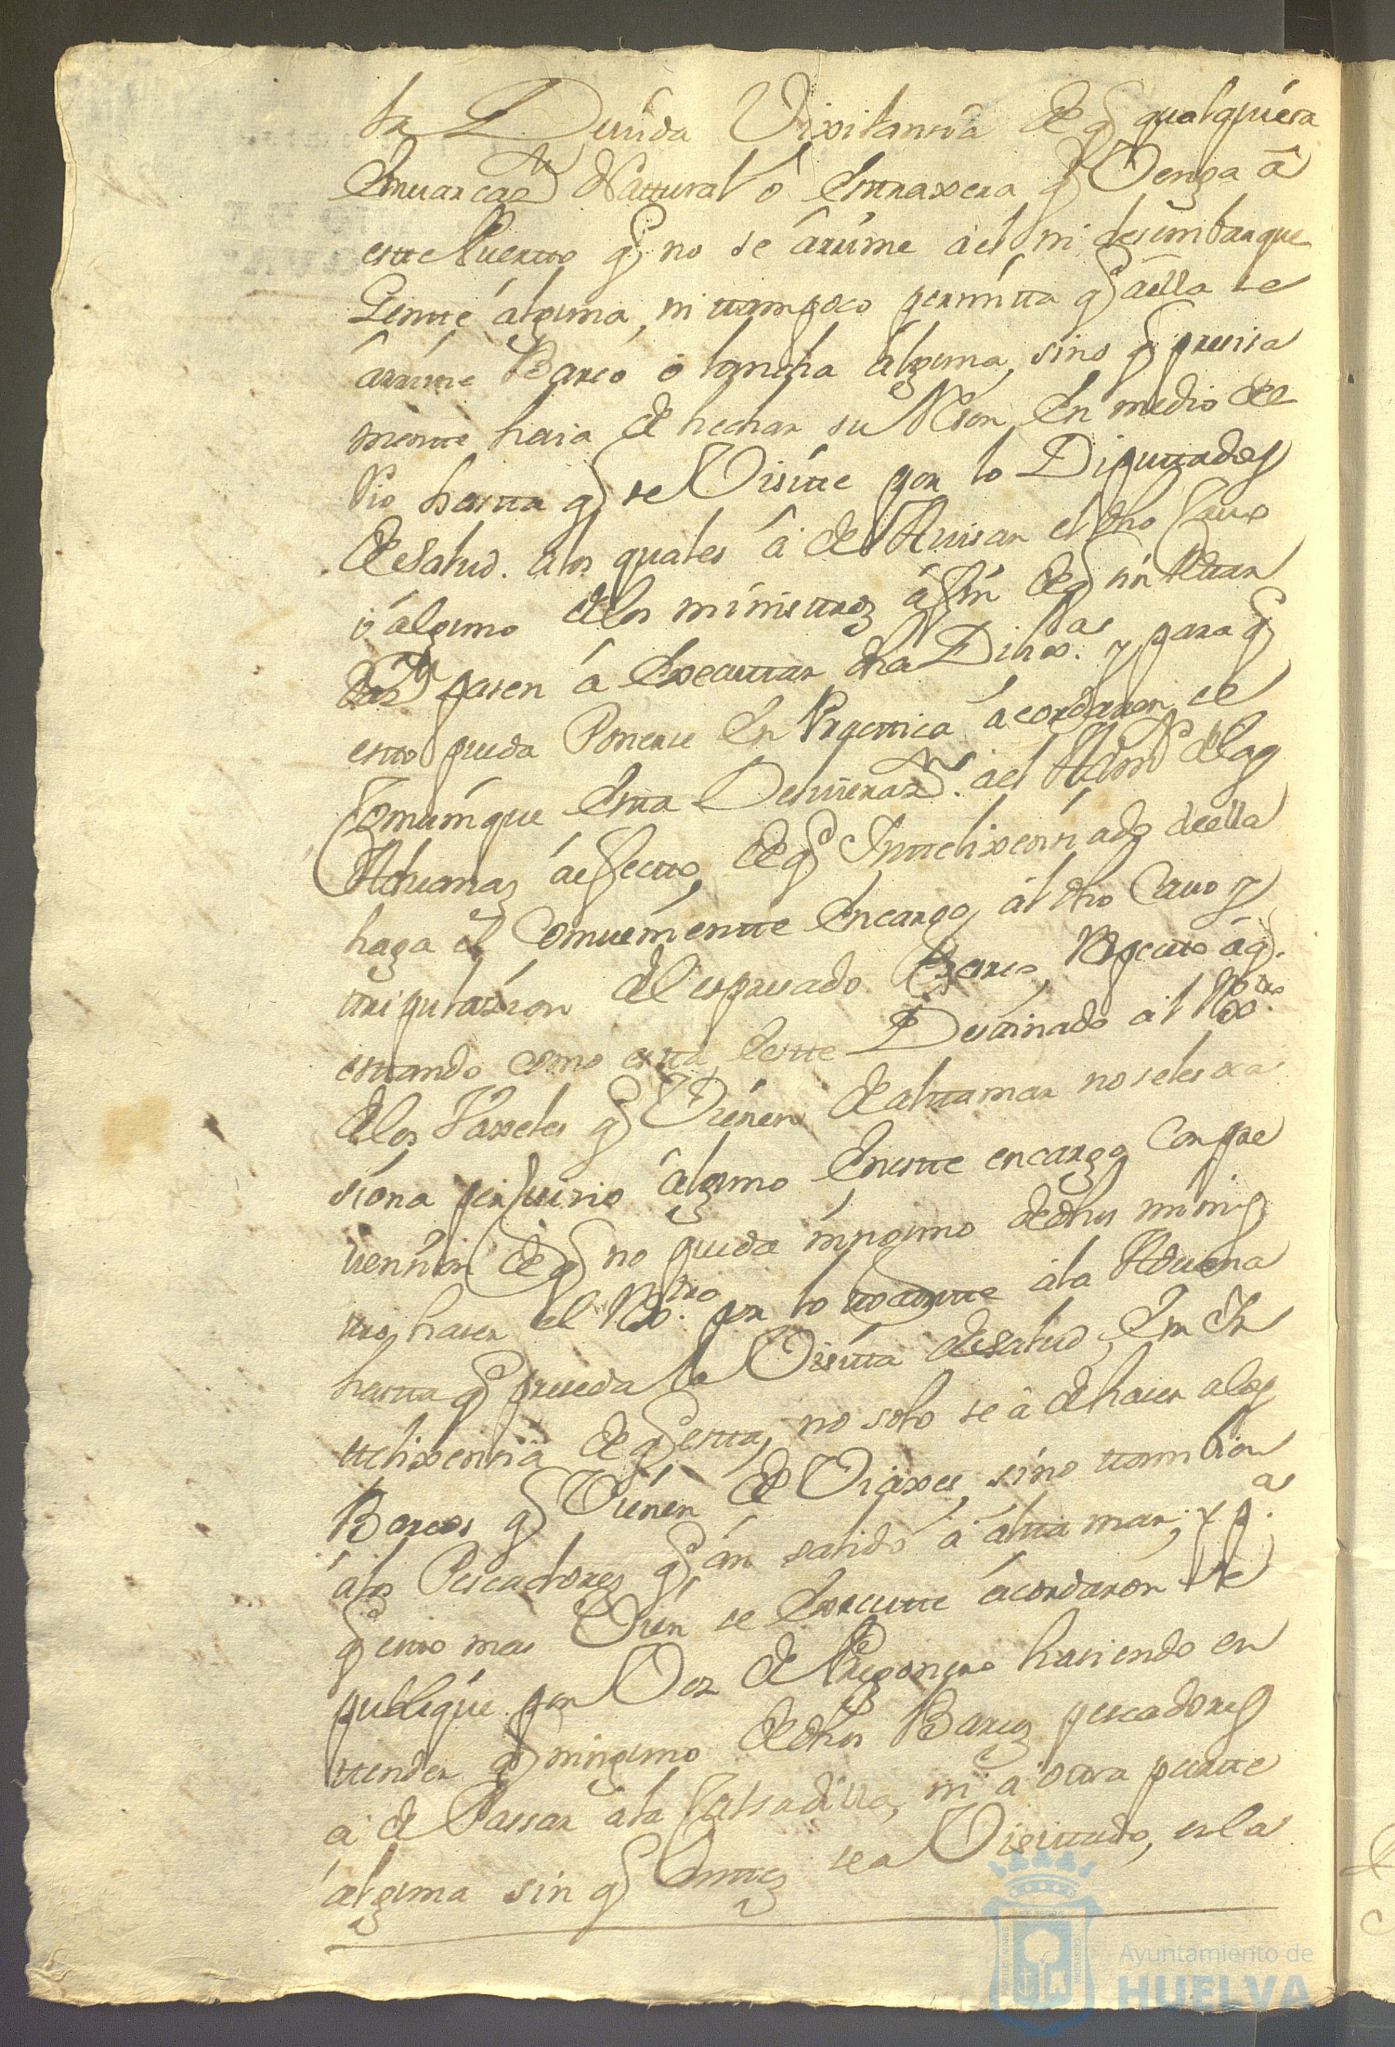 la Devida Vixilancia de q̃ qualquiera
Emvarcaz.n Nattural ô Extraxera q̃ Venga â
estte Puertto q̃ no se ârrime âel ni desembarque
Gentte álguna, ni ttampoco permitta q̃ âella se
ârrime Barco ô lancha álguna, sino q̃ precisa
mentte haia de hechar su Reson En medio del
Rio hastta q̃ se Visitte por lo Diputtados
de Salud. alos quales â de Avisar el dho Cavo
ô álguno delos ministtros á fin de q̃ sin
pasen á Executtar dha Dilix.as y para q̃
estto pueda Ponerse En Practtica ácordaron se
Comunique Estta Deliveraz.n ael Adm.or delas
Aduanas áefectto, de q̃ Inttelixenciado deella
haga el Comveniente Encargo, ál dho Cavo y
tripulazion del expresado Barco, Respectto áq̃.
esttando como estta estte Desttinado ál Rex.tro
delos Vaxeles q̃ Vienen de altta mar no seles oca
siona perjuicio álguno En estte encargo Con pre
vencion de q̃ no pueda ninguno de dhos minis
ttros, hacer el Rex.tro por lo ttocantte ála Aduana
hastta q̃ preceda la Visitta de Salud, En In
ttelixencia de q̃ estta, no solo se â de hacer alos
Barcos q̃ Vienen de Viaxes, sino ttambien
álos Pescadores q̃ án salido á altta mar; y p.a
q̃ estto mas Vien se Executte ácordaron se
publique por Voz de Pregonero haciendo en
ttender q̃ ninguno de dhos Barcos pescadores
á de Passar ála Calsadilla, ni á ottra partte
álguna sin q̃ Anttes sea Visittado, en la
Ayuntamiento de
HUELVA